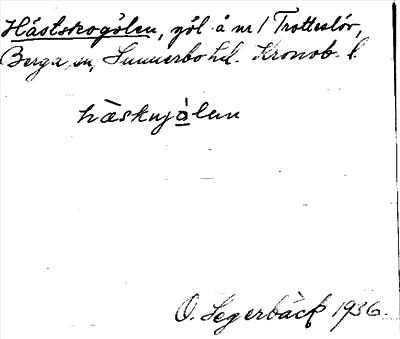 Hästskogölen, göl å nr 1 Trotteslöv,
Berga sn, Sunnerbo hd. Kronob. l.
hàskujö̀len
O. Segerbäck 1936.